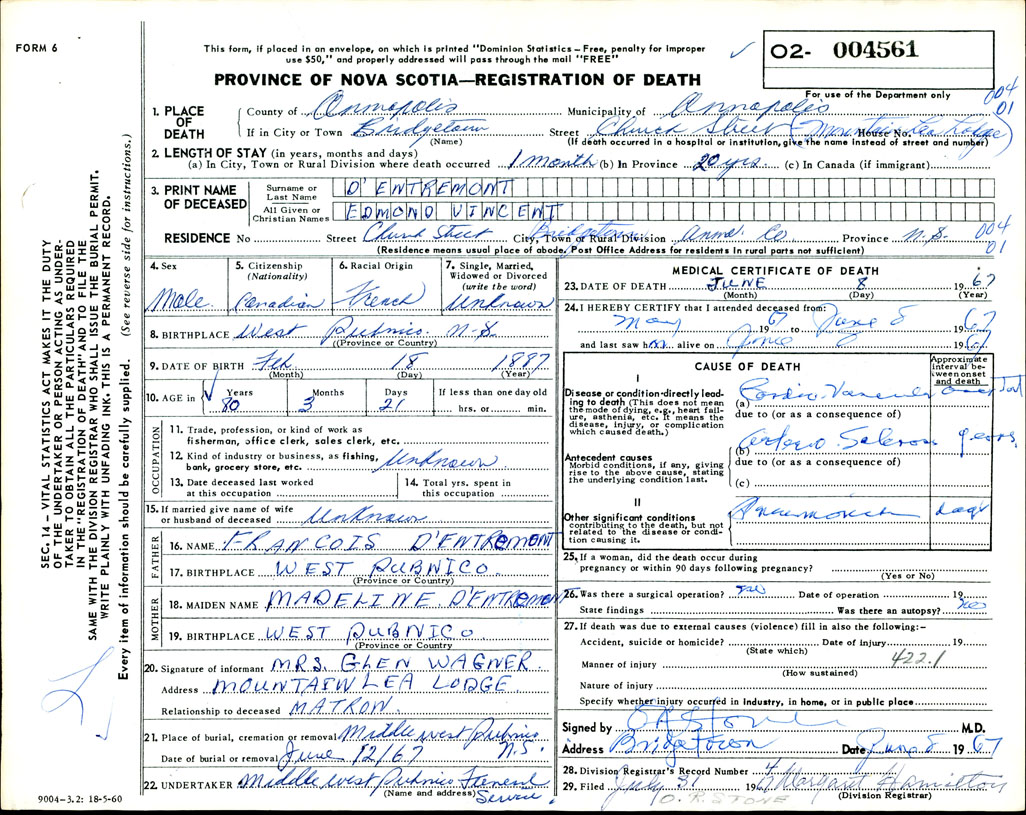 FORM 6
This form, if placed in an envelope, on which is printed "Dominion Statistics – Free, penalty for improper
use $50," and properly addressed will pass through the mail "FREE"
✓
O2- 004561
PROVINCE OF NOVA SCOTIA—REGISTRATION OF DEATH
For use of the Department only
004
01
1. PLACE OF DEATH
County of Annapolis Municipality of Annapolis
If in City or Town Bridgetown Street Church Street (Mountain Lea Lodge) House No.
(Name) (If death occurred in a hospital or institution, give the name instead of street and number)
2. LENGTH OF STAY (in years, months and days)
(a) In City, Town or Rural Division where death occurred 1 month (b) In Province 20 yrs (c) In Canada (if immigrant)
3. PRINT NAME OF DECEASED
Surname or Last Name D'ENTREMONT
All Given or Christian Names EDMOND VINCENT
RESIDENCE No Street Church Street City, Town or Rural Division Bridgetown Anna. Co Province N.S. 004
01
(Residence means usual place of abode. Post Office Address for Residents in rural parts not sufficient)
4. Sex Male
5. Citizenship (Nationality) Canadian
6. Racial Origin French
7. Single, Married, Widowed or Divorced (write the word) Unknown
8. BIRTHPLACE West Pubnico. N-S.
((Province or Country)
9. DATE OF BIRTH Feb 18 1887
(Month) (Day) (Year)
10. AGE in ✓ Years 80 Months 3 Days 21 If less than one day old
hrs. or min.
OCCUPATION
11. Trade, profession, or kind of work as
fisherman, office clerk, sales clerk, etc.
12. Kind of industry or business, as fishing,
bank, grocery store, etc. Unknown
13. Date deceased last worked
at this occupation
14. Total yrs. spent in
this occupation
15. If married give name of wife
or husband of deceased Unknown
FATHER
16. NAME FRANCOIS D'ENTREMONT
17. BIRTHPLACE WEST PUBNICO.
(Province or Country)
MOTHER
18. MAIDEN NAME MADELINE. D'ENTREMONT
19. BIRTHPLACE WEST PUBNICO
(Province or Country
20. Signature of informant MRS. GLEN WAGNER.
Address MOUNTAIN LEA LODGE
Relationship to deceased MATRON.
21. Place of burial, cremation or removal Middle West Pubnico
N.S.
Date of burial or removal June 12/67
22. UNDERTAKER Middle West Pubnico Funeral
(Name and address) Service
MEDICAL CERTIFICATE OF DEATH
23. DATE OF DEATH JUNE 8 1967
(Month) (Day) (Year)
24. I HEREBY CERTIFY that I attended deceased from:
May 1967 to June 8 1967
and last saw him alive on June 8 1967
CAUSE OF DEATH
Approximate interval between onset and death
I
Disease or condition directly leading to death (This does not mean the mode of dying, e.g., heart failure, asthenia, etc. It means the disease, injury, or complication which caused death.)
(a) Cardio-Vascular
due to (or as a consequence of)
Antecedent causes
Morbid conditions, if any, giving rise to the above cause, stating the underlying condition last.
(b) Arterio Scleros years
due to (or as a consequence of)
(c)
II
Other significant conditions
contributing to the death, but not related to the disease or condition causing it.
Pneumonia days
25. If a woman, did the death occur during
pregnancy or within 90 days following pregnancy?
(Yes or No)
26. Was there a surgical operation? no Date of operation 19
State findings Was there an autopsy? no
27. If death was due to external causes (violence) fill in also the following:–
Accident, suicide or homicide? Date of injury 19
(State which)
422.1
Manner of injury
(How sustained)
Nature of injury
Specify whether injury occurred in industry, in home, or in public place
Signed by M.D.
Address Bridgetown Date June 8 1967
28. Division Registrar's Record Number
29. Filed July 31 1967 Margaret Hamilton
O. R. STONE (Division Registrar)
9004-3.2: 18-5-60
SEC. 14 – VITAL STATISTICS ACT MAKES IT THE DUTY
OF THE UNDERTAKER OR PERSON ACTING AS UNDER-
TAKER TO OBTAIN ALL THE PARTICULARS REQUIRED
IN THE "REGISTRATION OF DEATH" AND TO FILE THE
SAME WITH THE DIVISION REGISTRAR WHO SHALL ISSUE THE BURIAL PERMIT.
WRITE PLAINLY WITH UNFADING INK. THIS IS A PERMANENT RECORD.
Every item of information should be carefully supplied. (See reverse side for instructions.)